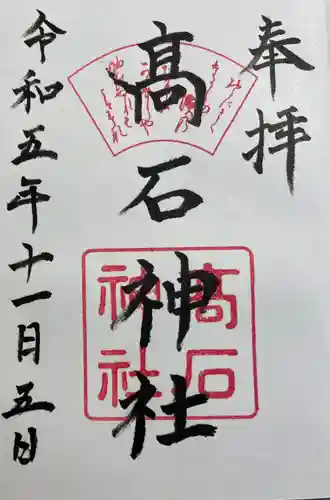 奉拝
髙石神社
高石
神社
令和五年十一月五日